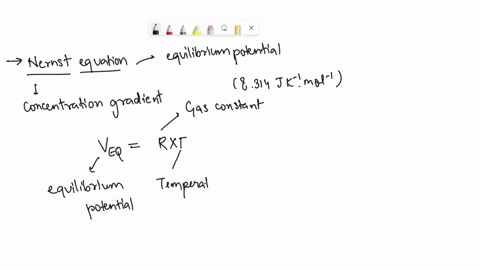 → Nernst equation → equilibrium potential
↓
concentration gradient
(8.314 JK⁻¹.mol⁻¹)
Gas constant
V_EQ = RXT
equilibrium potential
Temperal